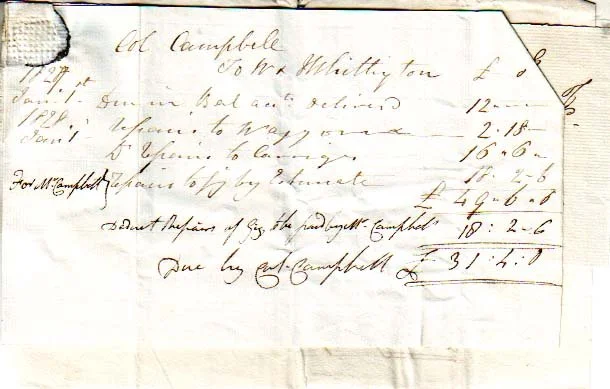 Col Campbell
To W & J Whittington £ s d
1827
Jan 1st Due in Bal acct Delivered 12 - -
1828
Jan 1 Repairs to Waggons 2 - 18 -
Do Repairs to Carriage 16 - 6 -
For Mr Campbell} Repairs to Gig by Estimate 18 - 2 - 6
£ 49 - 6 - 6
Deduct Repairs of Gig to be paid by Mr. Campbell 18 : 2 - 6
Due by Col. Campbell £ 31 : 4 : 0